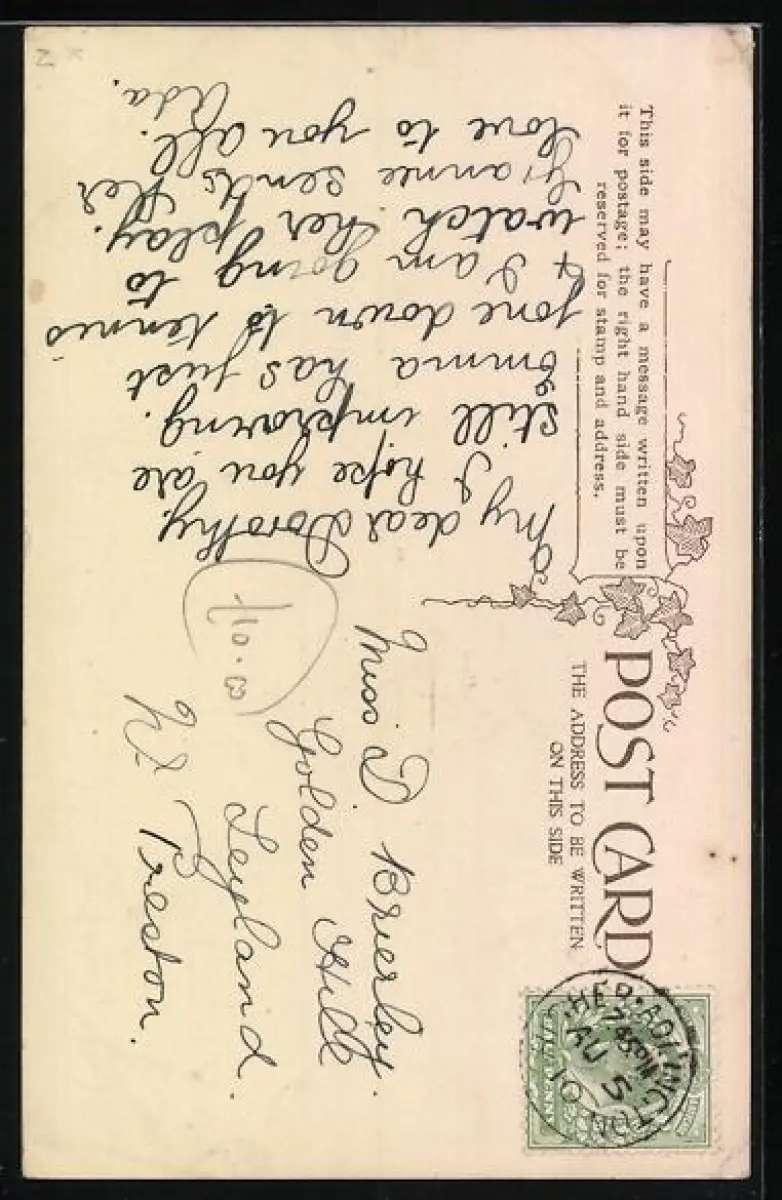 This side may have a message written upon
it for postage; the right hand side must be
reserved for stamp and address.
POST CARD
THE ADDRESS TO BE WRITTEN
ON THIS SIDE
My dear Dorothy.
I hope you are
still improving.
Emma has just
gone down to tennis
& I am going to
watch her play.
Grannie sends her
love to you all.
Ada.
Miss D Brierley.
Golden Hill
Leyland.
Nr Preston.
£10.00
HIGHER ADLINGTON
7 45 PM
AU 5
10
HALFPENNY